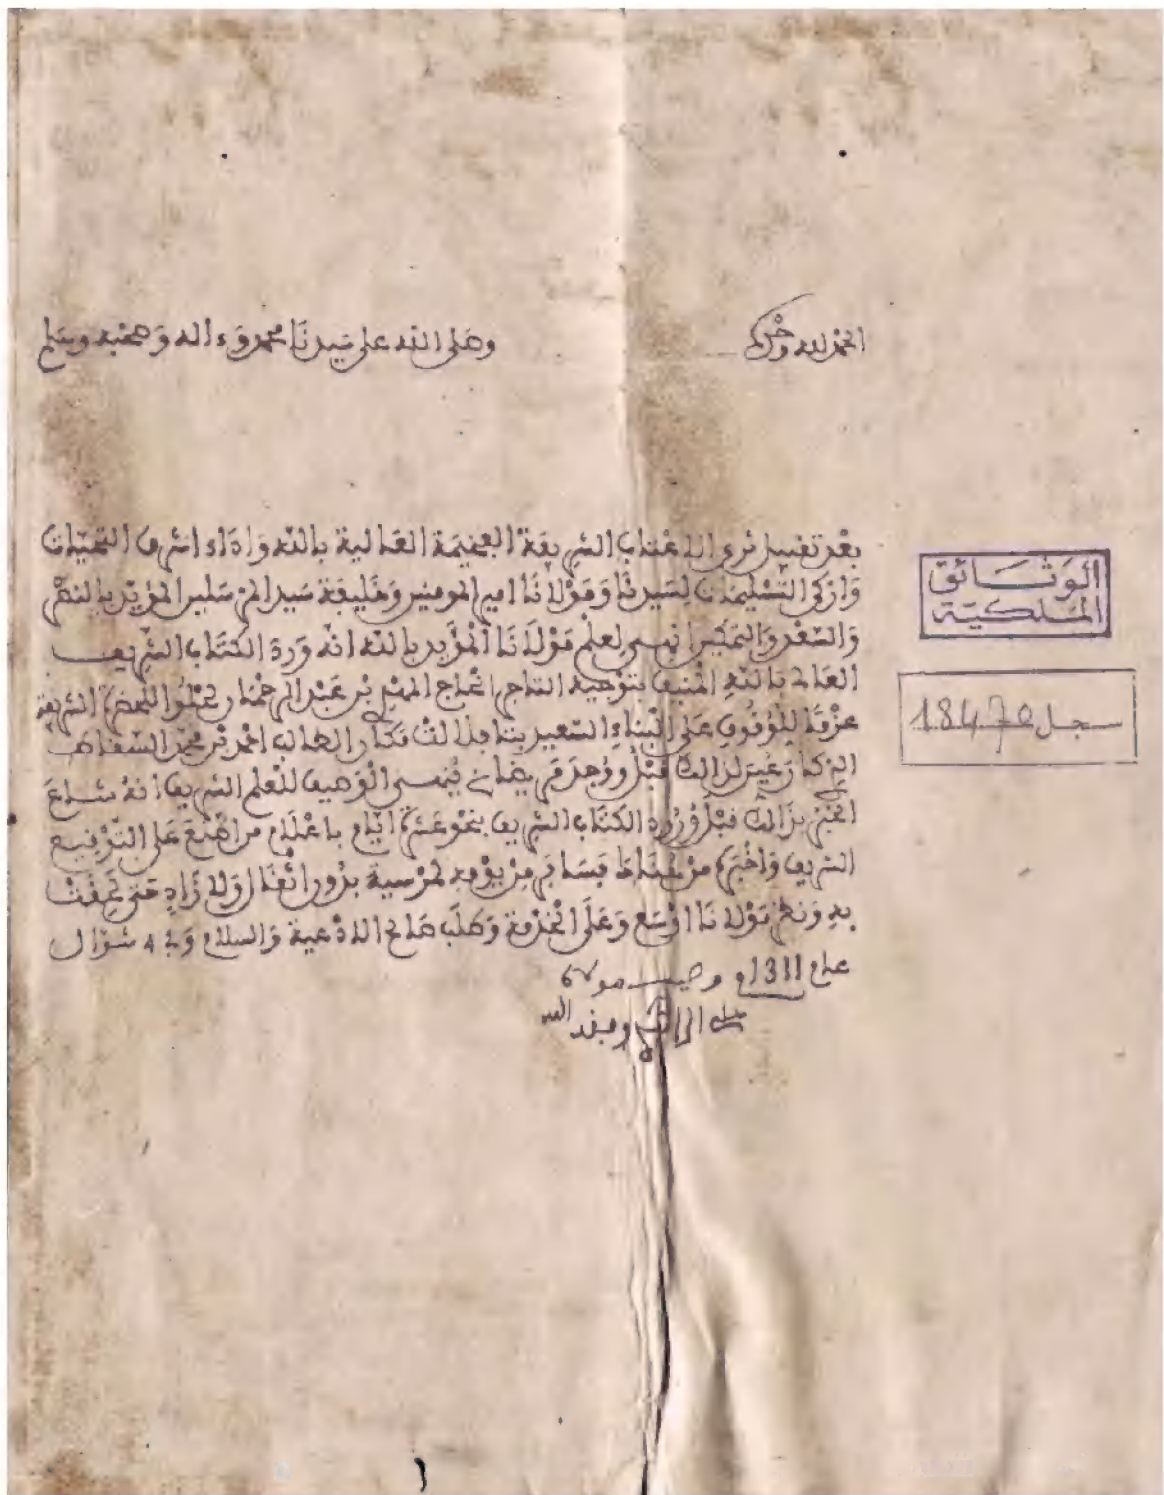 الحمد لله وحده
وصلى الله على سيدنا محمد وءاله وصحبه وسلم
بعد تقبيل ثرى الاعتاب الشريفة الفخيمة العالية بالله وَاداء اشرف التحيات
وَازكى التسليمات لسيدنا وَمَوْلانا امير المومنين وَخليفة سَيد المرسلين المؤيد بالنصر
وَالسّعْد وَالتمكين ينهى لعلم مَوْلَانَا المؤيد بالله انه وَرد الكتاب الشريف
العالى بالله المنيف بتوْجيه التاجر الحاج المهدي بْن عَبْد الرحمان للحضرة الشريفة
عزْمًا للوُقوف عَلى البْناءِ السّعيد بذلك فكان الطالب احمد بن محمد
الركما عين لذالك قبْل وَوُجد ينهى الْوَصيف للعلم الشريف انهُ شاع
الخبر بذالك قبْل وُرُودِ الكتاب الشريف بنحو عشرة ايام باعْلَام من اطلع عَلى التّوْقيع
الشريف وَاخْبره مرْ هُنَاكَ فسَافر مِنْ يوْمه لمرْسية بدُون زادٍ حتى تحققت
بهِ وَنظر مَوْلانا اوْسَع وَعَلى الخدْمة وَطلب صَالح الادْعية وَالسلام وَفى 4 شوّال
عام 1311 وصيف
الله
الوَثَائق
المَلكيّة
سجل 18470